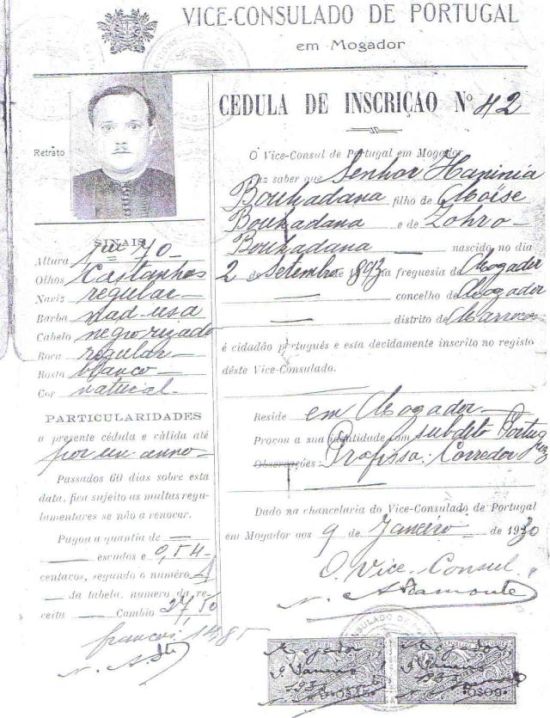 VICE-CONSULADO DE PORTUGAL
em Mogador
Retrato
SINAIS
Altura 1m 70
Olhos Castanhos
Nariz regular
Barba não usa
Cabelo negro rizado
Boca regular
Rosto blanco
Cor natural
PARTICULARIDADES
a presente cédula e válida até
por un anno
Passados 60 dias sobre esta
data, fica sujeito as multas regu-
lamentares se não a renovar.
Pagou a quantia de
escudos e 0,54
centavos, segundo o numero 4
da tabela, numero da re-
ceita Cambio 27,50
francos 14,85
CEDULA DE INSCRIÇAO Nº 42
O Vice-Consul de Portugal em Mogador
faz saber que Senhor
Bouhadana filho de Moïse
Bouhadana e de Zohro
Bouhadana nascido no dia
2 de Setembro de 1893 na freguesia de Mogador
concelho de Mogador
distrito de Marrocos
é cidadão português e esta decidamente inscrito no registo
déste Vice-Consulado.
Reside em Mogador
Provou a sua identidade com subdito Portuguez
Observações Profissa: Corredor
Dado na chancelaria do Vice-Consulado de Portugal
em Mogador aos 9 de Janeiro de 1930
O Vice-Consul
Mogador
Mogador